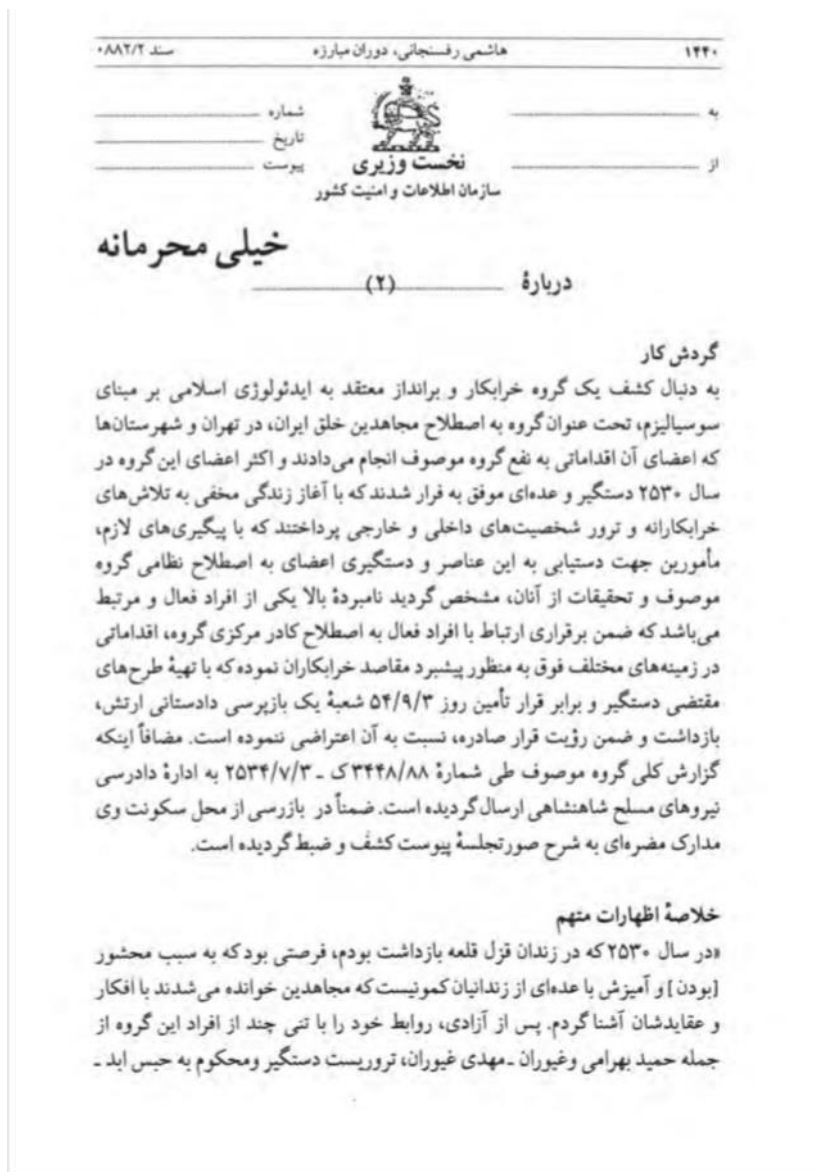 ۱۴۴۰ هاشمی رفسنجانی، دوران مبارزه سند ۰۸۸۲/۲
به شماره
تاریخ
از نخست وزیری پیوست
سازمان اطلاعات و امنیت کشور
خیلی محرمانه
دربارهٔ (۲)
گردش کار
به دنبال کشف یک گروه خرابکار و برانداز معتقد به ایدئولوژی اسلامی بر مبنای
سوسیالیزم، تحت عنوان گروه به اصطلاح مجاهدین خلق ایران، در تهران و شهرستان‌ها
که اعضای آن اقداماتی به نفع گروه موصوف انجام می‌دادند و اکثر اعضای این گروه در
سال ۲۵۳۰ دستگیر و عده‌ای موفق به فرار شدند که با آغاز زندگی مخفی به تلاش‌های
خرابکارانه و ترور شخصیت‌های داخلی و خارجی پرداختند که با پیگیری‌های لازم،
مأمورین جهت دستیابی به این عناصر و دستگیری اعضای به اصطلاح نظامی گروه
موصوف و تحقیقات از آنان، مشخص گردید نامبردهٔ بالا یکی از افراد فعال و مرتبط
می‌باشد که ضمن برقراری ارتباط با افراد فعال به اصطلاح کادر مرکزی گروه، اقداماتی
در زمینه‌های مختلف فوق به منظور پیشبرد مقاصد خرابکاران نموده که با تهیهٔ طرح‌های
مقتضی دستگیر و برابر قرار تأمین روز ۵۴/۹/۳ شعبهٔ یک بازپرسی دادستانی ارتش،
بازداشت و ضمن رؤیت قرار صادره، نسبت به آن اعتراضی ننموده است. مضافاً اینکه
گزارش کلی گروه موصوف طی شمارهٔ ۳۴۴۸/۸۸ک ـ ۲۵۳۴/۷/۳ به ادارهٔ دادرسی
نیروهای مسلح شاهنشاهی ارسال گردیده است. ضمناً در بازرسی از محل سکونت وی
مدارک مضره‌ای به شرح صورتجلسهٔ پیوست کشف و ضبط گردیده است.
خلاصهٔ اظهارات متهم
«در سال ۲۵۳۰ که در زندان قزل قلعه بازداشت بودم، فرصتی بود که به سبب محشور
[بودن] و آمیزش با عده‌ای از زندانیان کمونیست که مجاهدین خوانده می‌شدند با افکار
و عقایدشان آشنا گردم. پس از آزادی، روابط خود را با تنی چند از افراد این گروه از
جمله حمید بهرامی وغیوران ـ مهدی غیوران، تروریست دستگیر ومحکوم به حبس ابد ـ